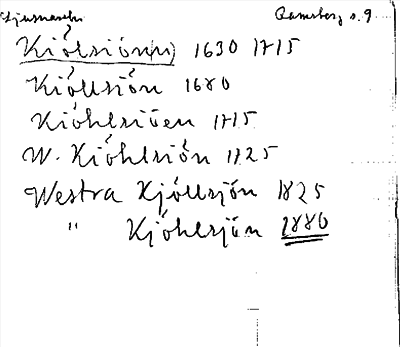 Ljusnarsbn Ramsberg s. 9
Kiólsiön(n) 1630 1715
Kióllsión 1680
Kióhlsiöen 1715
W. Kióhlsiön 1725
Westra Kjöllsjön 1825
" Kjöhlsjön 1880